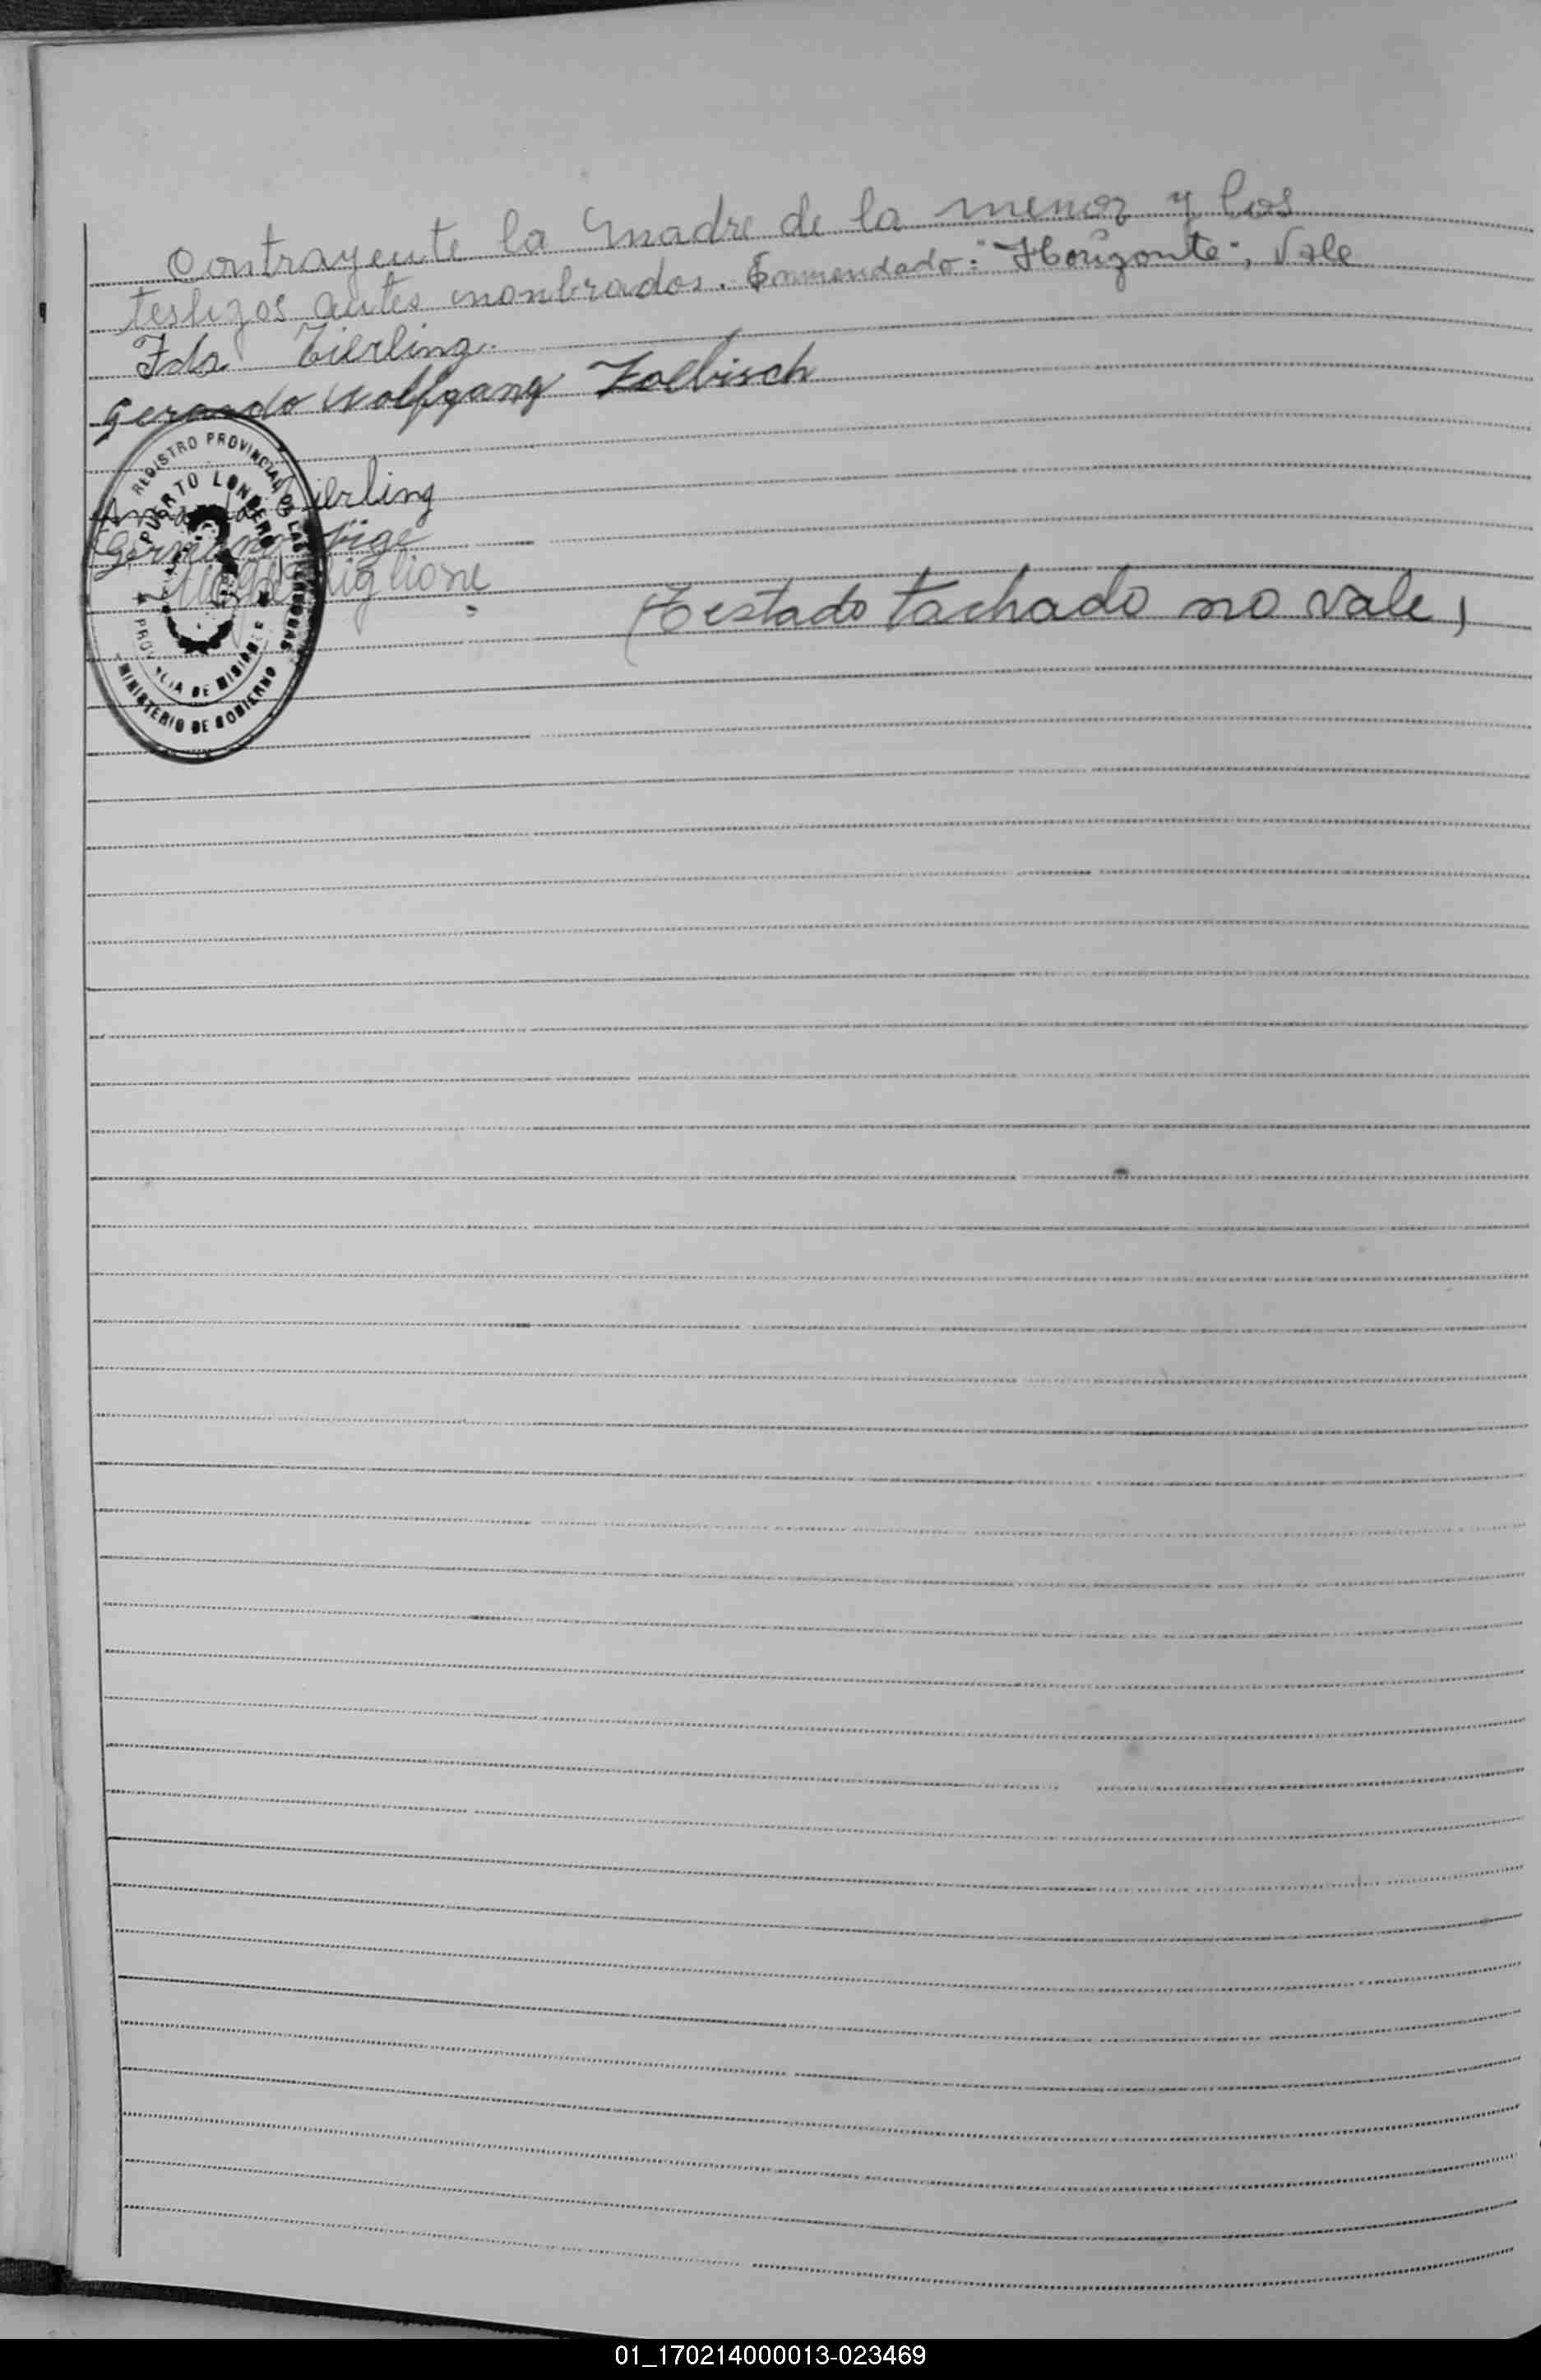 Contrayente la madre de la menor y los
testigos antes nonbrados. Enmendado: "Horizonte", Vale
Ida Zierling.
Gerardo Wolfgang Zoelbisch
Zierling
(Testado tachado no vale)
REGISTRO PROVINCIAL DE LAS PERSONAS
PUERTO LONDERO
PROVINCIA DE MISIONES
MINISTERIO DE GOBIERNO
01_170214000013-023469